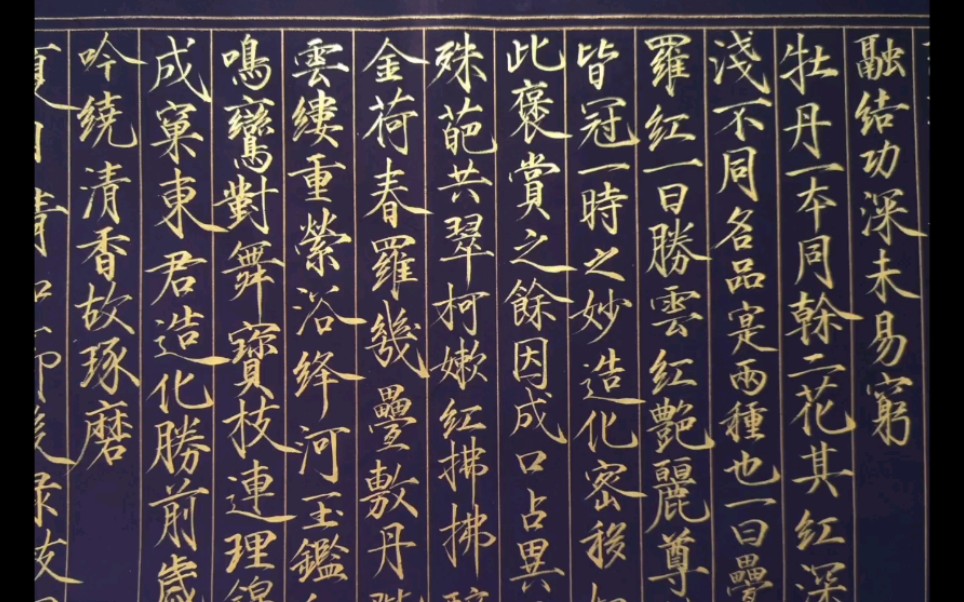 融结功深未易窮
牡丹一本同榦二花其红深
浅不同名品寔兩種也一曰疊
羅红一曰勝雲红艷麗尊
皆冠一時之妙造化密移
此褒賞之餘因成口占異
殊葩共翠柯嫩红拂拂
金荷春羅幾疊敷丹
雲縷重縈浴绛河玉鑑
鳴鸞對舞寶枝連理錦
成窠東君造化勝前歲
吟繞清香故琢磨